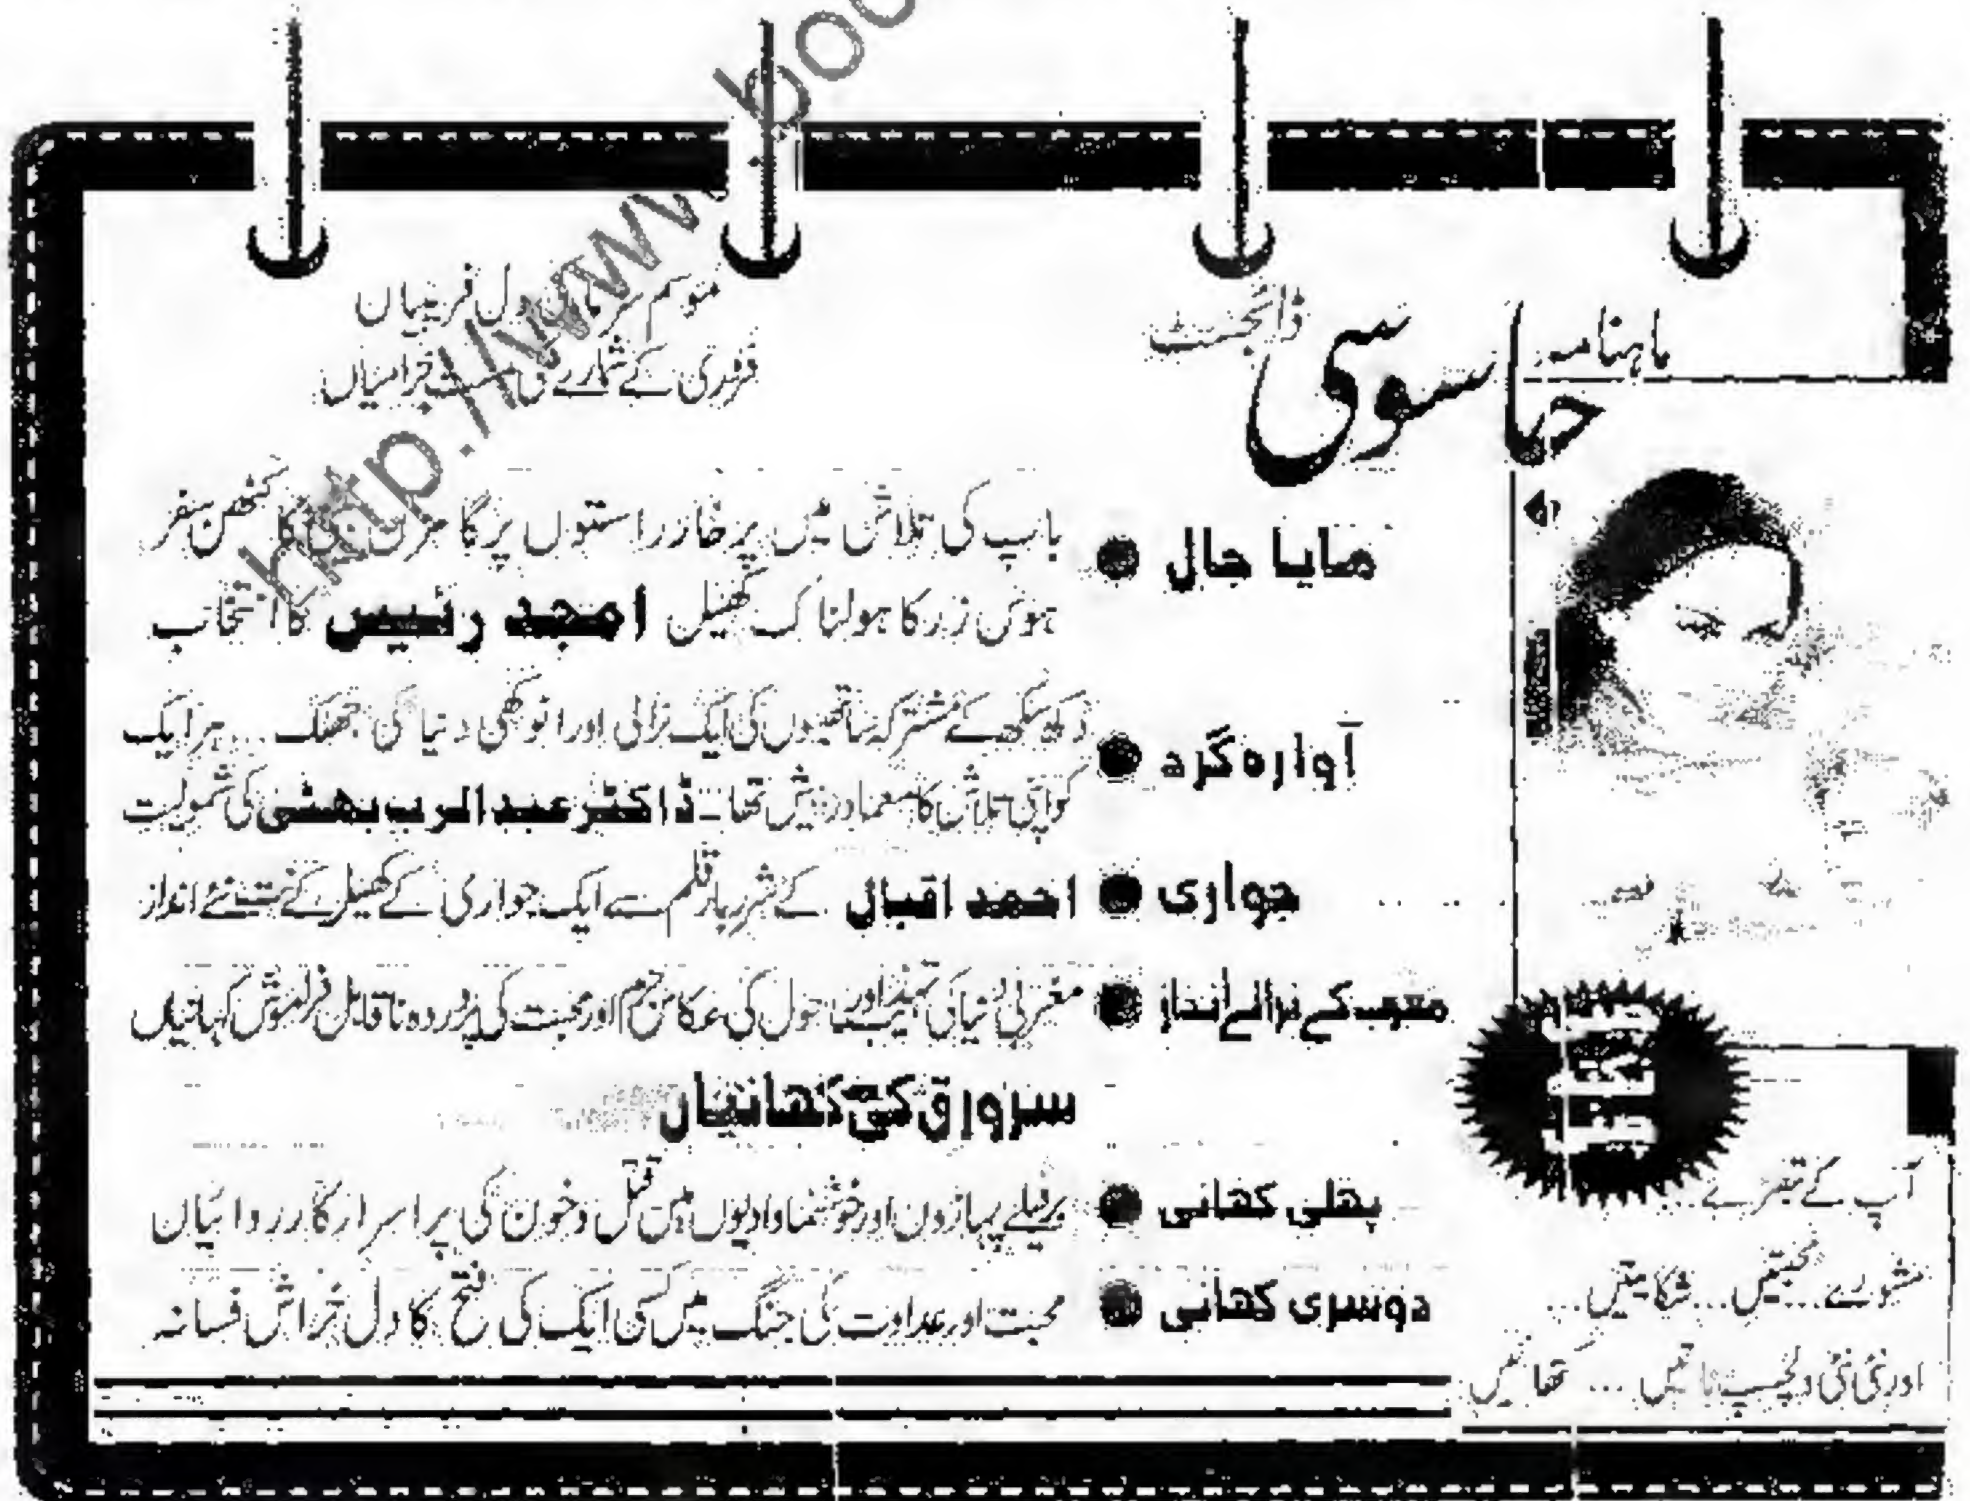 ماہنامہ جاسوسی ڈائجسٹ
موسم سرما کی دل فریبیاں
فروری کے شمارے کی خرامیاں
مایا جال ● باپ کی تلاش میں پرخار راستوں پر گامزن کا کٹھن سفر
ہوس زر کا ہولناک کھیل امجد رئیس کا انتخاب
آوارہ گرد ● دکھ سکھ کے مشترکہ ساتھیوں کی ایک نرالی اور انوکھی دنیا کی جھلک ... ہر ایک
کو اپنی تلاش کا معما درپیش تھا ـ ڈاکٹر عبدالرب بھٹی کی شمولیت
جواری ● احمد اقبال کے شرربار قلم سے ایک جواری کے کھیل کے نت نئے انداز
مغرب کے نرالے انداز ● مغربی دنیا کی تہذیب اور ماحول کی عکاس جرم اور محبت کی پردرد ناقابل فراموش کہانیاں
سرورق کی کہانیاں
پہلی کہانی ● برفیلے پہاڑوں اور خوشنما وادیوں میں قتل و خون کی پراسرار کارروائیاں
دوسری کہانی ● محبت اور عداوت کی جنگ میں کسی ایک کی فتح کا دل خراش فسانہ
آپ کے تبصرے ...
مشورے ... محبتیں ... شکایتیں ...
اور نئی نئی دلچسپ باتیں ... کتھائیں
http://www.